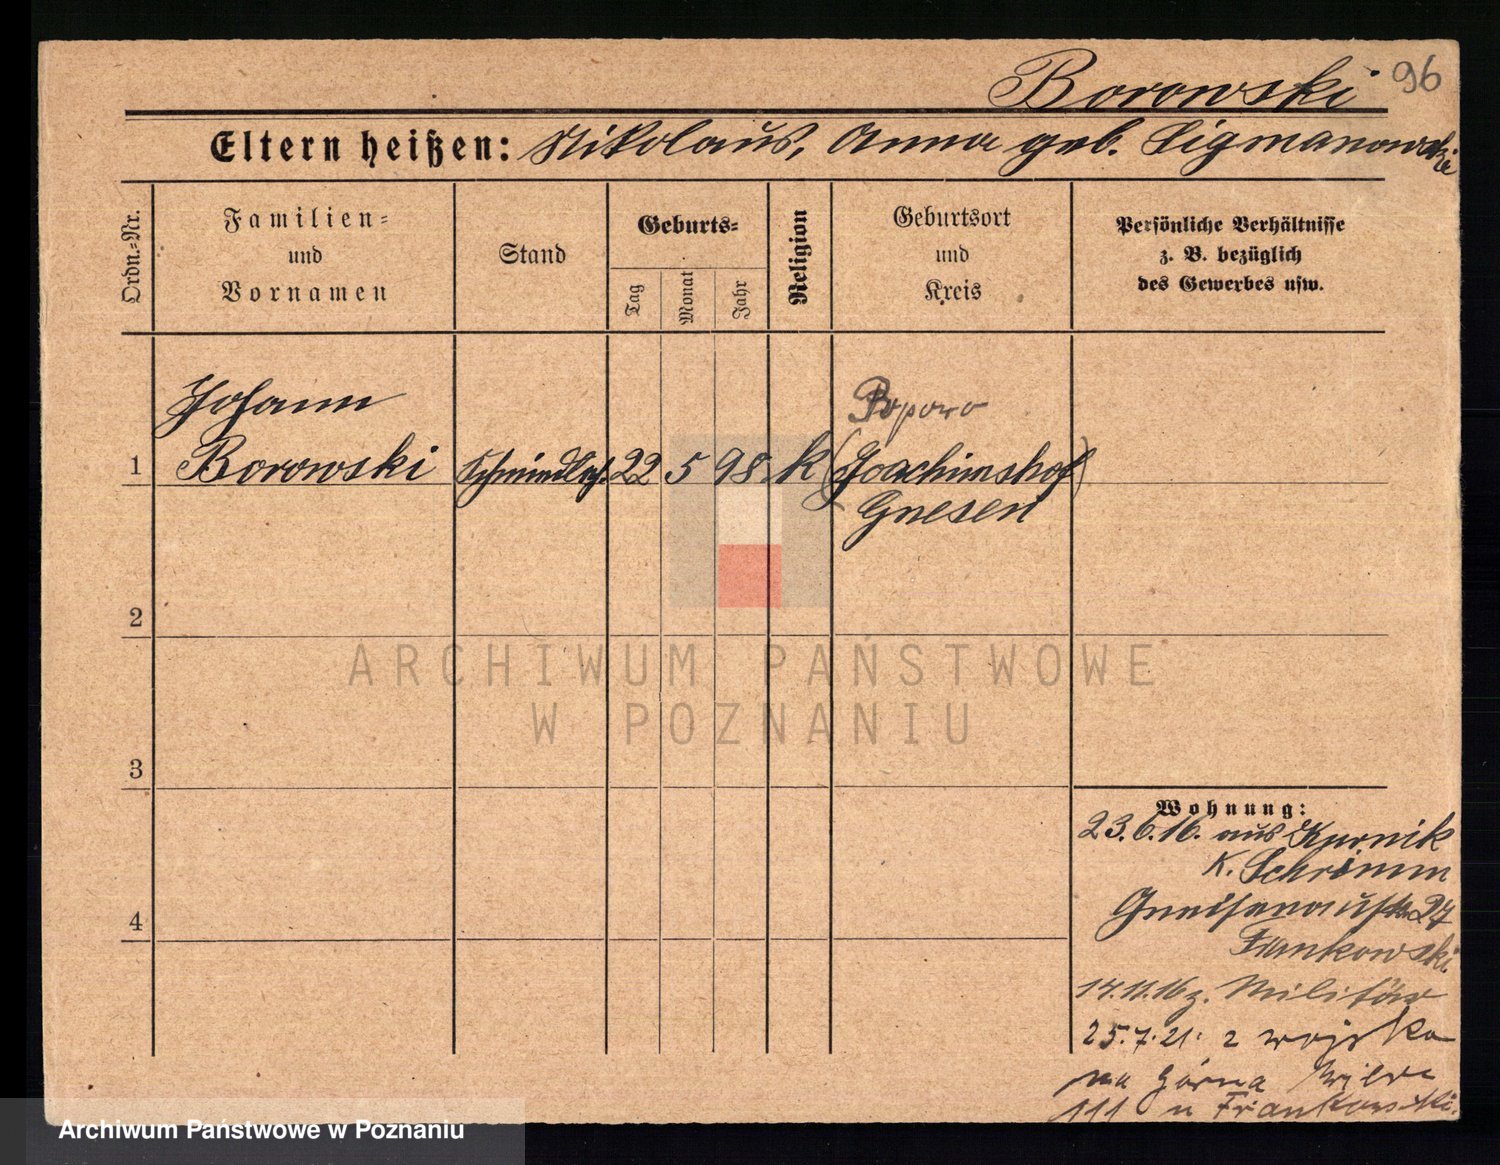 Borowski 96
Eltern heißen: Nikolaus, Anna geb. Sigmanowska
Ordn.-Nr.
Familien-
und
Vornamen
Stand
Geburts-
Tag
Monat
Jahr
Religion
Geburtsort
und
Kreis
Persönliche Verhältnisse
z. B. bezüglich
des Gewerbes usw.
Johann Popowo
1 Borowski Schmiedlg. 22 5 98 k (Joachimshof)
Gnesen
2
ARCHIWUM PAŃSTWOWE
W POZNANIU
3
Wohnung:
23.6.16. aus Kurnik
K. Schrimm
4 Gneisenaustr. 27
Frankowski
14.11.16 z. Militär
25.7.21. z wojska
na Górna Wilda
111 u Frankowski.
Archiwum Państwowe w Poznaniu